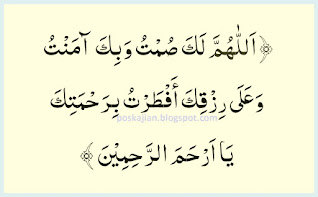 ﴿اَللّٰهُمَّ لَكَ صُمْتُ وَبِكَ آمَنْتُ
وَعَلَى رِزْقِكَ أَفْطَرْتُ بِرَحْمَتِكَ
poskajian.blogspot.com
يَا اَرْحَمَ الرَّحِمِيْنَ﴾